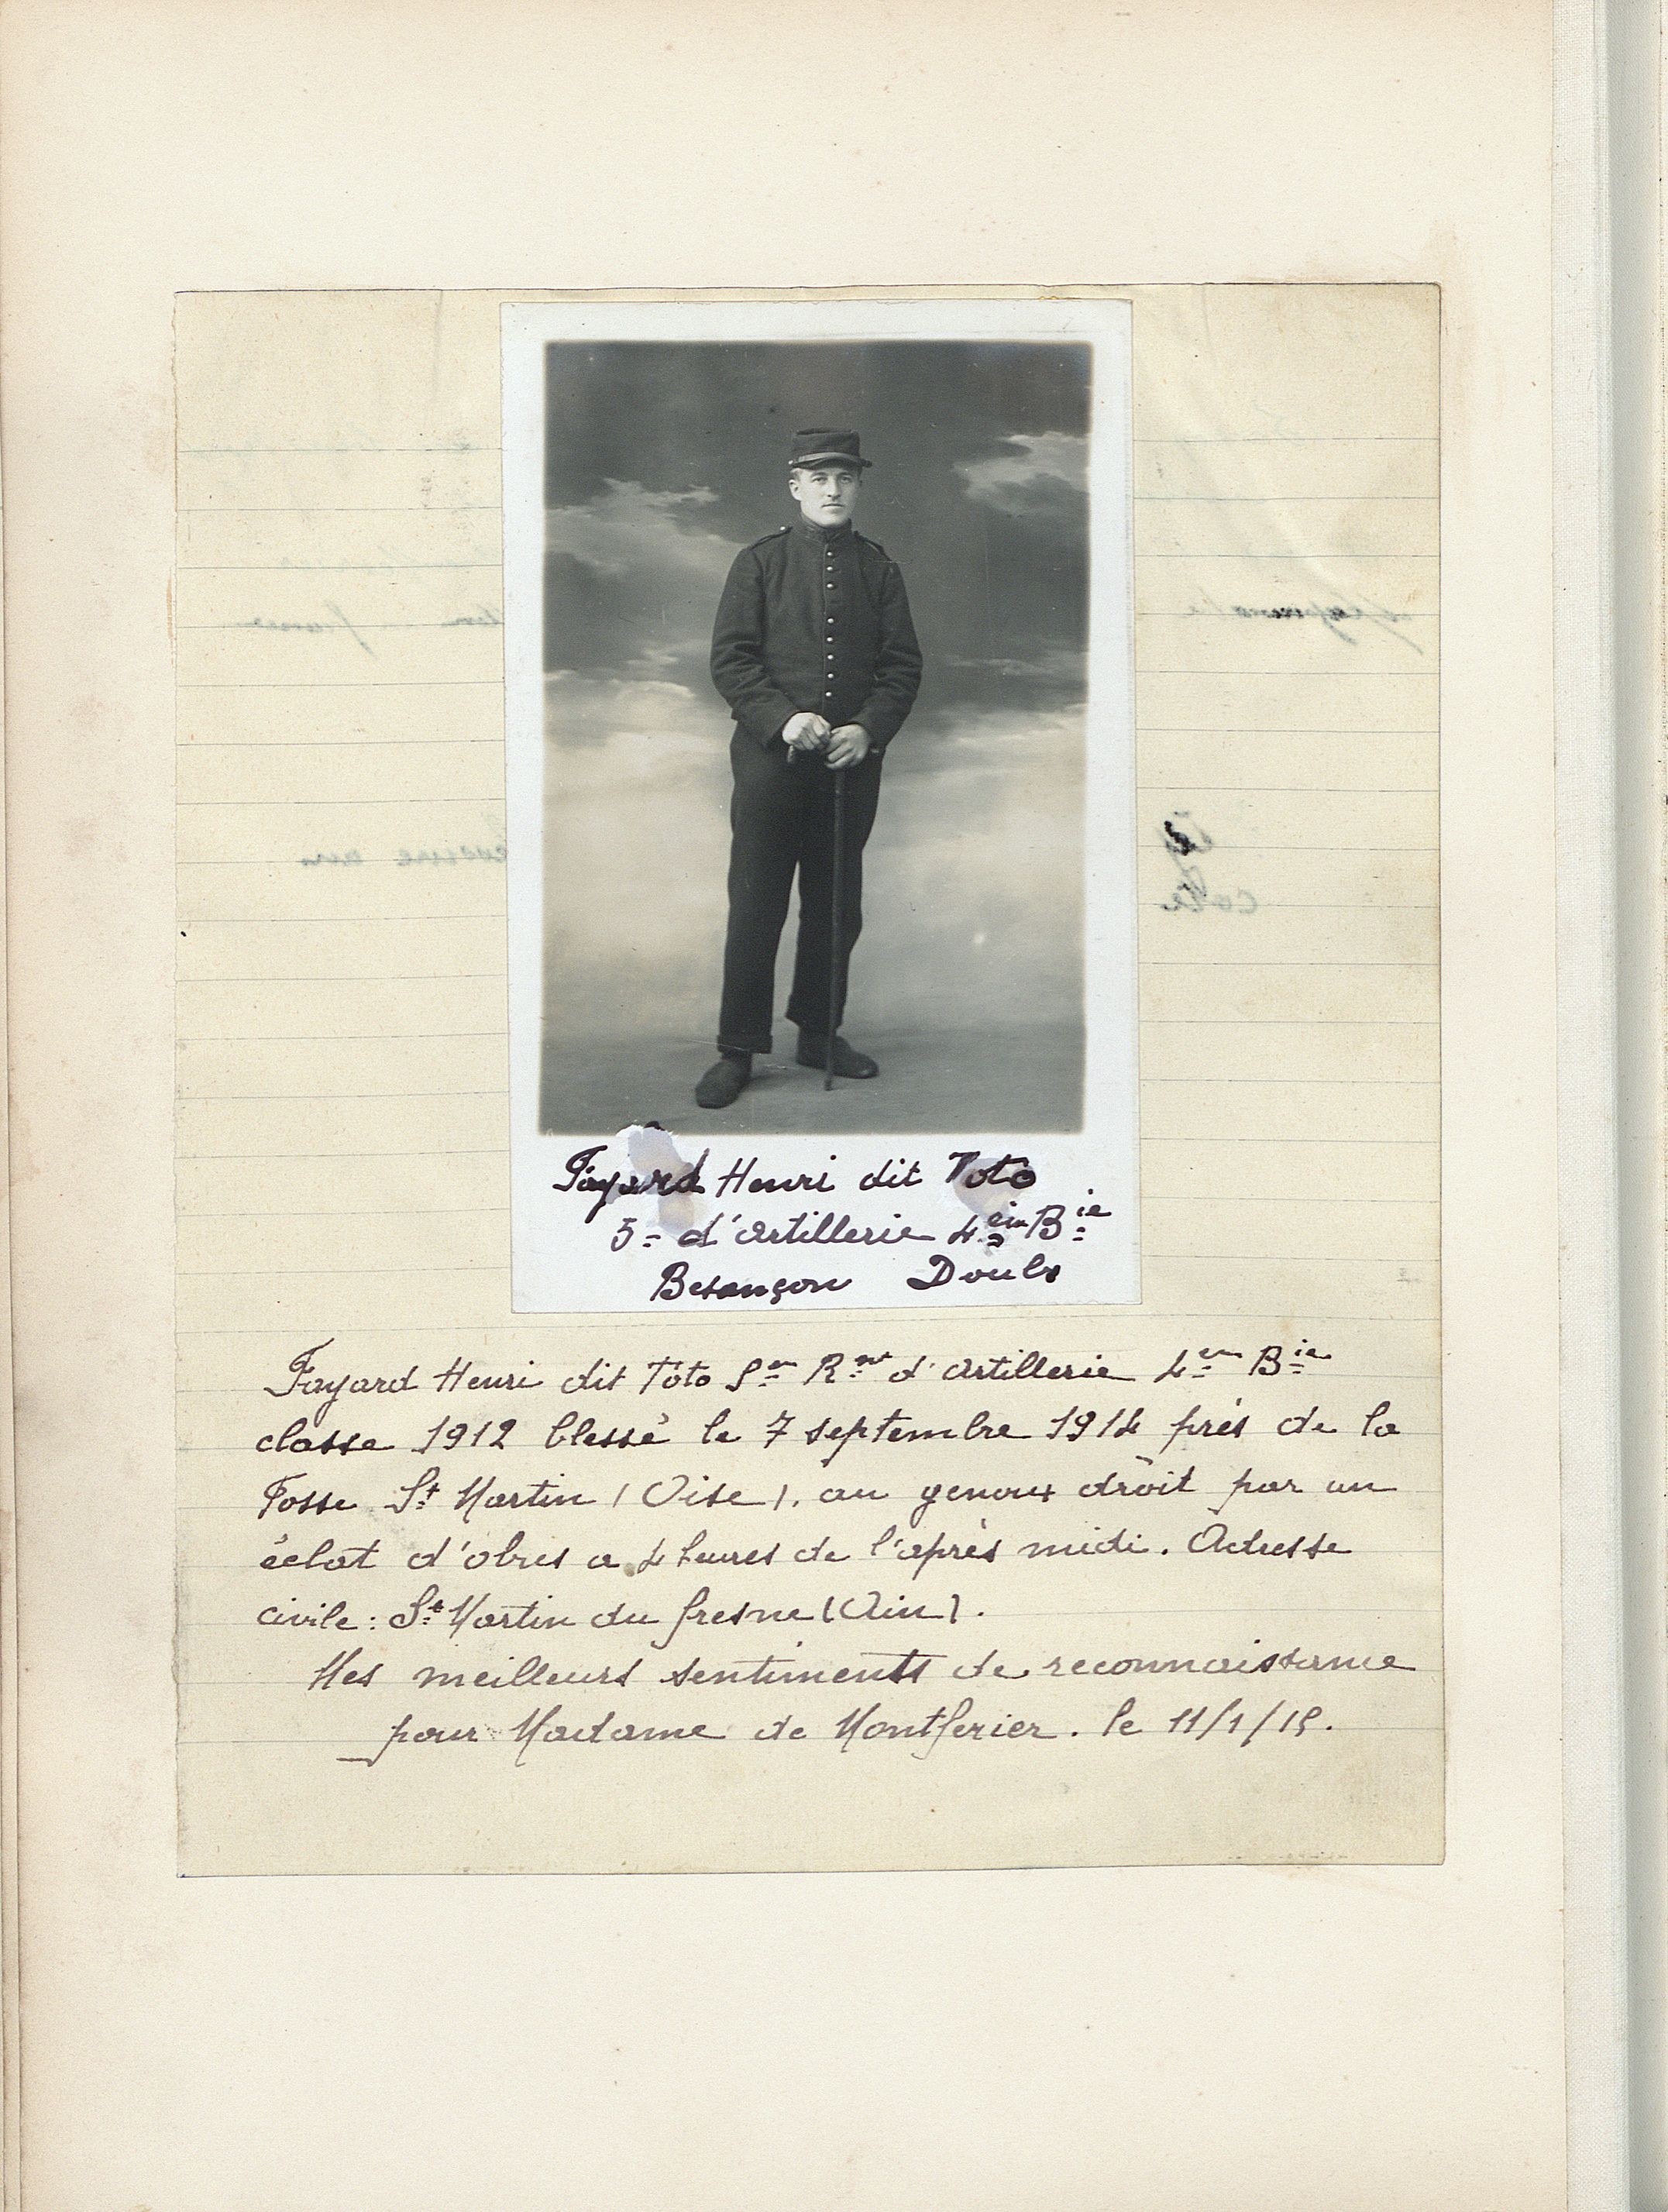 Fayard Henri dit Toto
5= d'artillerie 4em Bie
Besançon Doubs
Fayard Henri dit Toto 5em Rnt d'artillerie 4em Bie
classe 1912 blessé le 7 septembre 1914 près de la
Fosse St Martin (Oise), au genoux droit par un
éclat d'obus a 4 heures de l'après midi. Adresse
civile : St Martin du fresne (Ain).
Mes meilleurs sentiments de reconnaissance
pour Madame de Montferier. le 11/1/15.